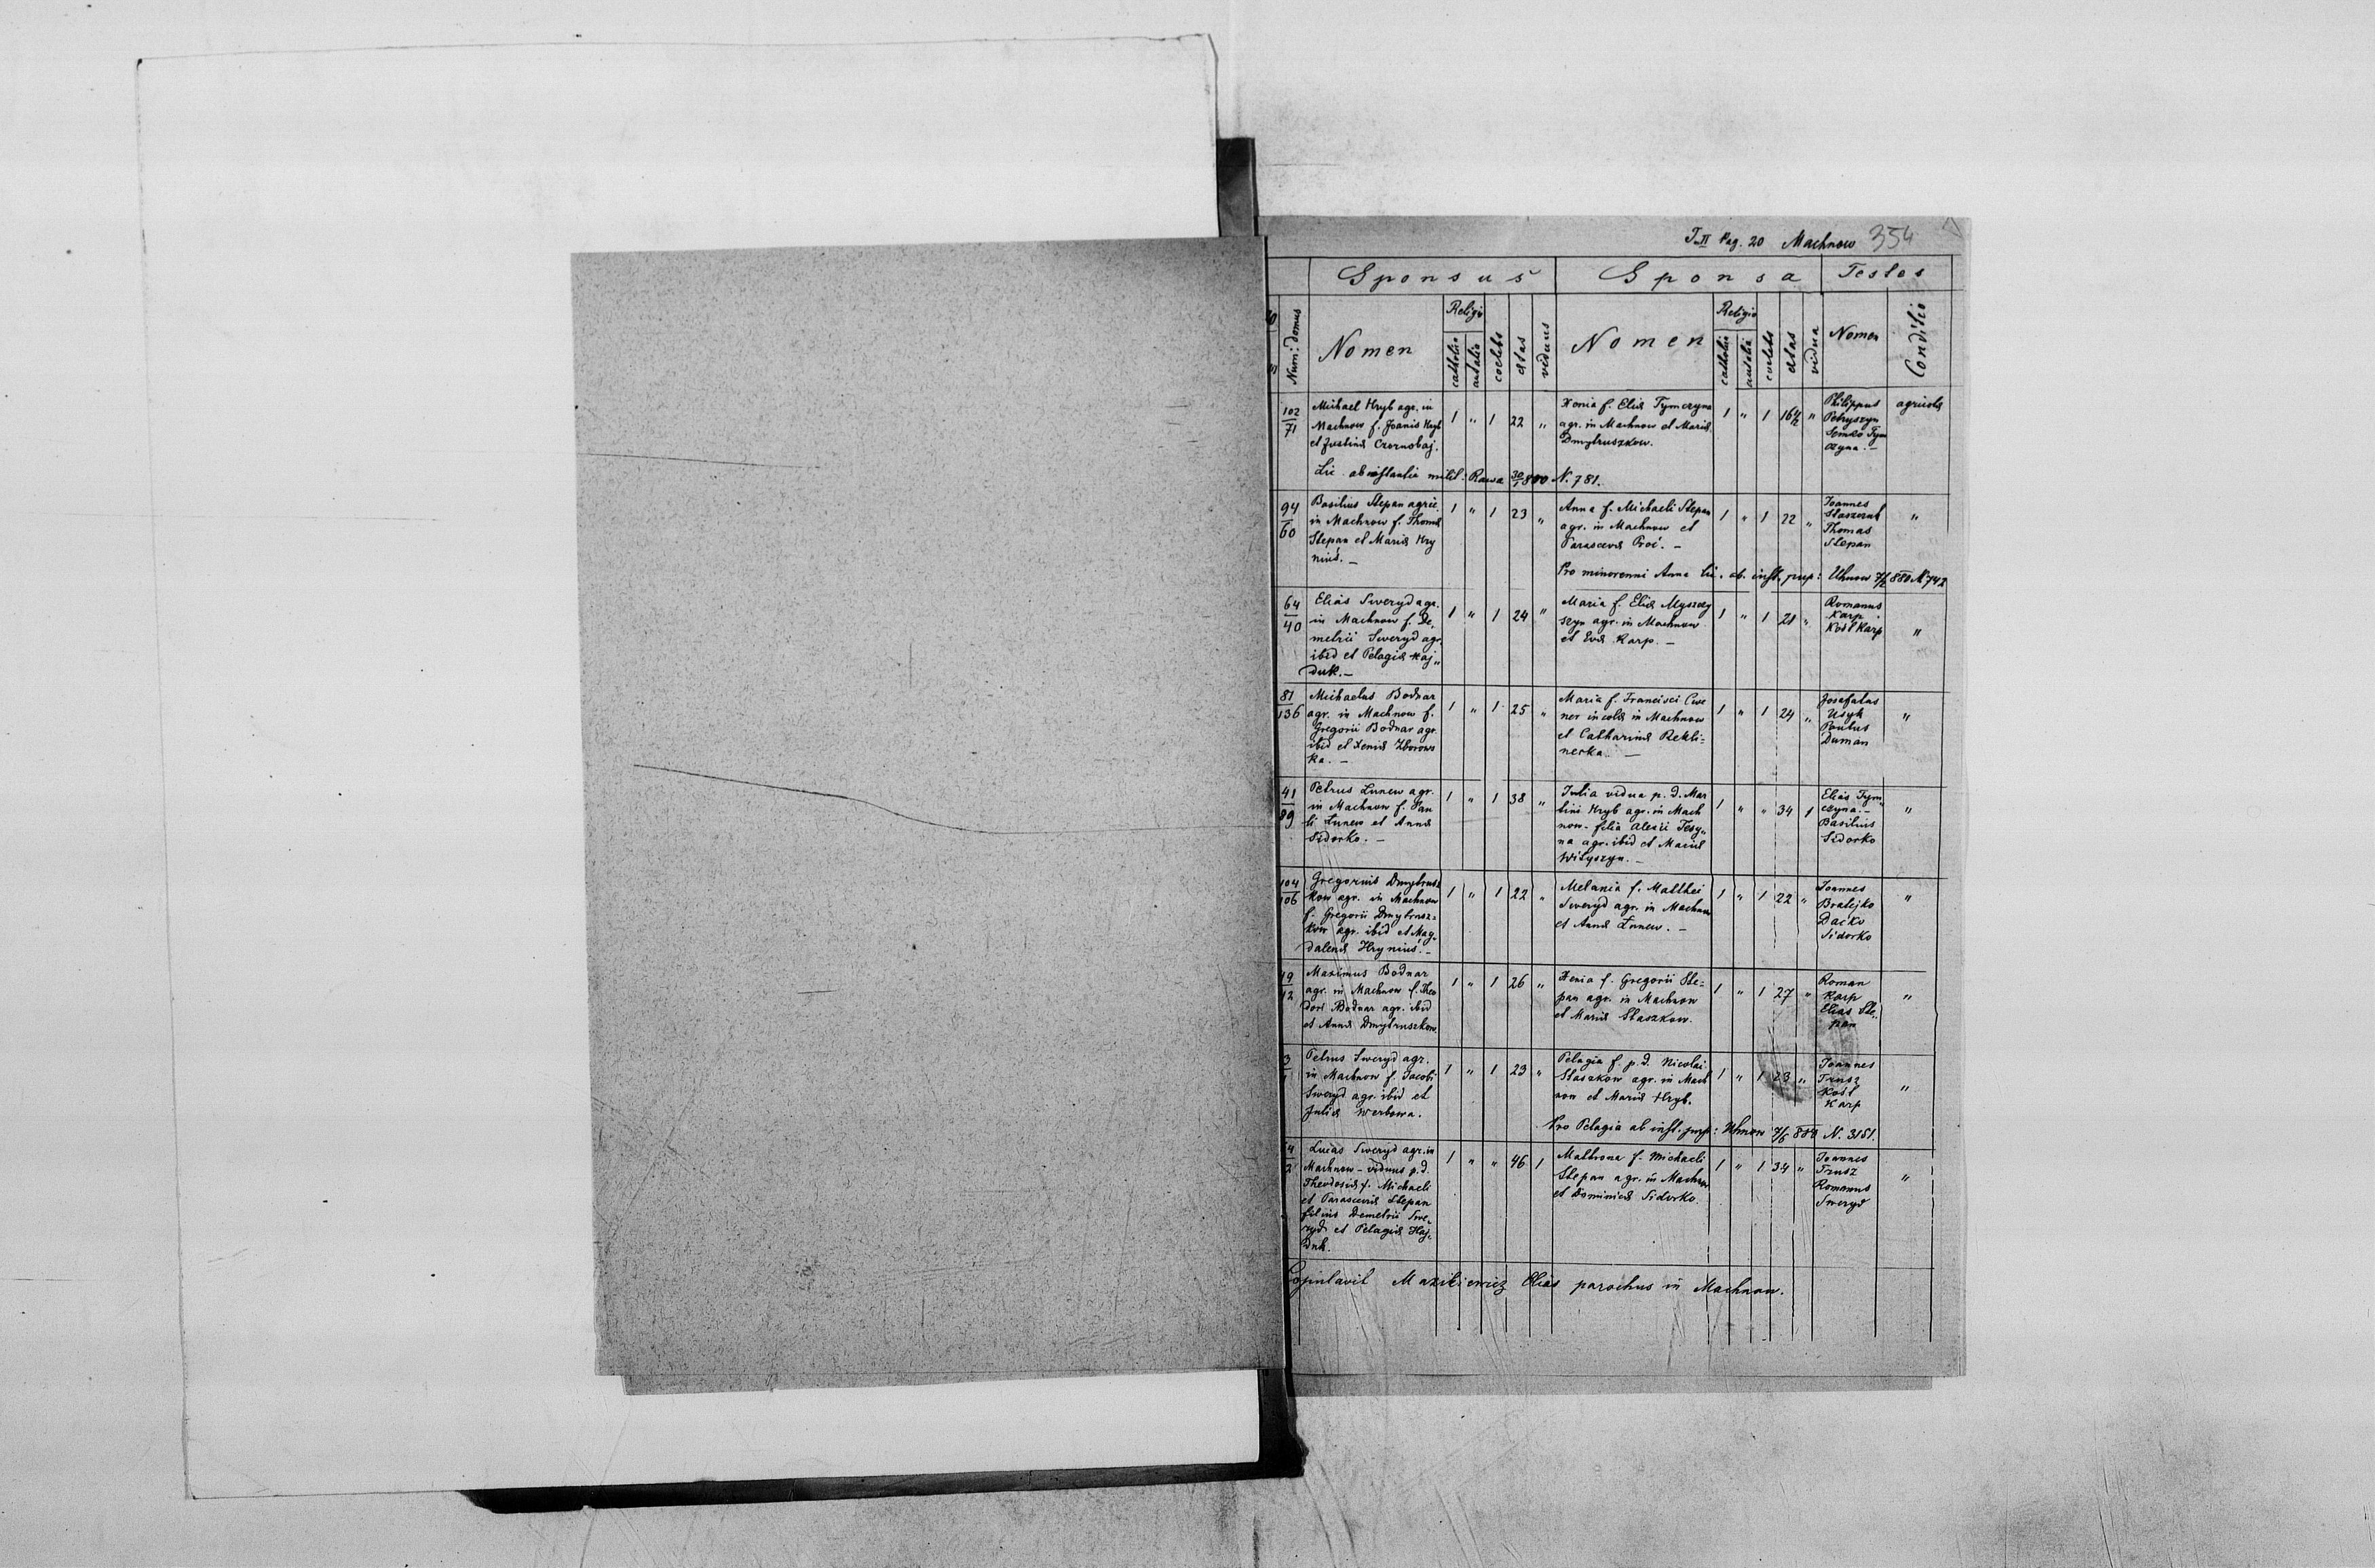 T. II Pag. 20 Machnow 354
Sponsus Sponsa Testes
Num: domus
Nomen
Religio
catholic
aut alia
coelebs
etas
viduus
Nomen
Religio
catholic
aut alia
coelebs
etas
vidua
Nomen
Conditio
102
71
Michael Hryb agr. in
Machnow f. Joanis Hryb
et Justinæ Czornobaj.
1 " 1 22 "
Xenia f. Eliæ Tymczyna
agr. in Machnow et Mariæ
Dmytruszkow.
1 " 1 16 1/2 "
Philippus
Petryszyn
Semko Tym
czyna. –
agricolæ
Lic. ab instantia milit: Rawa 30/1 880 N. 781.
94
60
Basilius Stepan agric.
in Machnow f. Thomæ
Stepan et Mariæ Hry
niuś. –
1 " 1 23 "
Anna f. Michaeli Stepan
agr. in Machnow et
Parasceviæ Proć. –
1 " 1 22 "
Joannes
Thomas
Stepan
"
Pro minorenni Anna lic. ab. inst. pup: Uhnow 7/2 880 N 742
64
40
Elias Sweryd agr.
in Machnow f. De,
metrii Sweryd agr.
ibid et Pelagiæ Haj„
duk. –
1 " 1 24 "
Maria f. Eliæ Myszczy
szyn agr. in Machnow
et Evæ Karp. –
1 " 1 21 "
Romanus
Karp
Kost Karp
"
81
136
Michaelus Bodnar
agr. in Machnow f.
Gregorii Bodnar agr.
ibid et Xeniæ Zborows
ka. –
1 " 1 25 "
Maria f. Francisci Cwe
ner incolæ in Machnow
et Catharinæ Rekli=
necka. –
1 " 1 24 "
Josafatus
Usyk
Paulus
Duman
"
41
89
Petrus Lunew agr.
in Machnow f. Pau
li Lunew et Annæ
Sidorko. –
1 " 1 38 "
Julia vidua p. d. Mar
tini Hryb agr. in Mach
now. filia Alexii Tesy„
na agr. ibid et Mariæ
Wityszyn. –
1 " " 34 1
Elias Tym„
czyna. –
Basilius
Sidorko
"
104
106
Gregorius Dmytrusz
kow agr. in Machnow
f. Gregorii Dmytrusz=
kow agr. ibid et Mag„
dalenæ Hryniuś. –
1 " 1 22 "
Melania f. Matthei
Sweryd agr. in Machnow
et Annæ Lunew. –
1 " 1 22 "
Joannes
Bratejko
Daćko
Sidorko
"
19
12
Maximus Bodnar
agr. in Machnow f. Theo
dori Bodnar agr. ibid
et Annæ Dmytruszkow.
1 " 1 26 "
Xenia f. Gregorii Ste=
pan agr. in Machnow
et Mariæ Staszkow.
1 " 1 27 "
Roman
Karp
Elias Ste„
pan
"
3
Petrus Sweryd agr.
in Machnow f. Jacobi
Sweryd agr. ibid et
Juliæ Werbowa.
1 " 1 23 "
Pelagia f. p. d. Nicolai
Staszkow agr. in Mach
now et Mariæ Hryb.
1 " 1 23 "
Joannes
Trusz
Kost
Karp
"
Pro Pelagia ab inst. pup: Uhnow 7/5 880 N. 3151.
4
2
Lucas Sweryd agr. in
Machnow – viduus p. d.
Theodosiæ f. Michaeli
et Parasceviæ Stepan
filius Demetrii Swe„
ryd et Pelagiæ Haj„
duk.
1 " " 46 1
Mathrona f. Michaeli
Stepan agr. in Machnow
et Dominicæ Sidorko.
1 " 1 34 "
Joannes
Trusz
Romanus
Sweryd
"
Copulavit Mazikiewicz Elias parochus in Machnow.